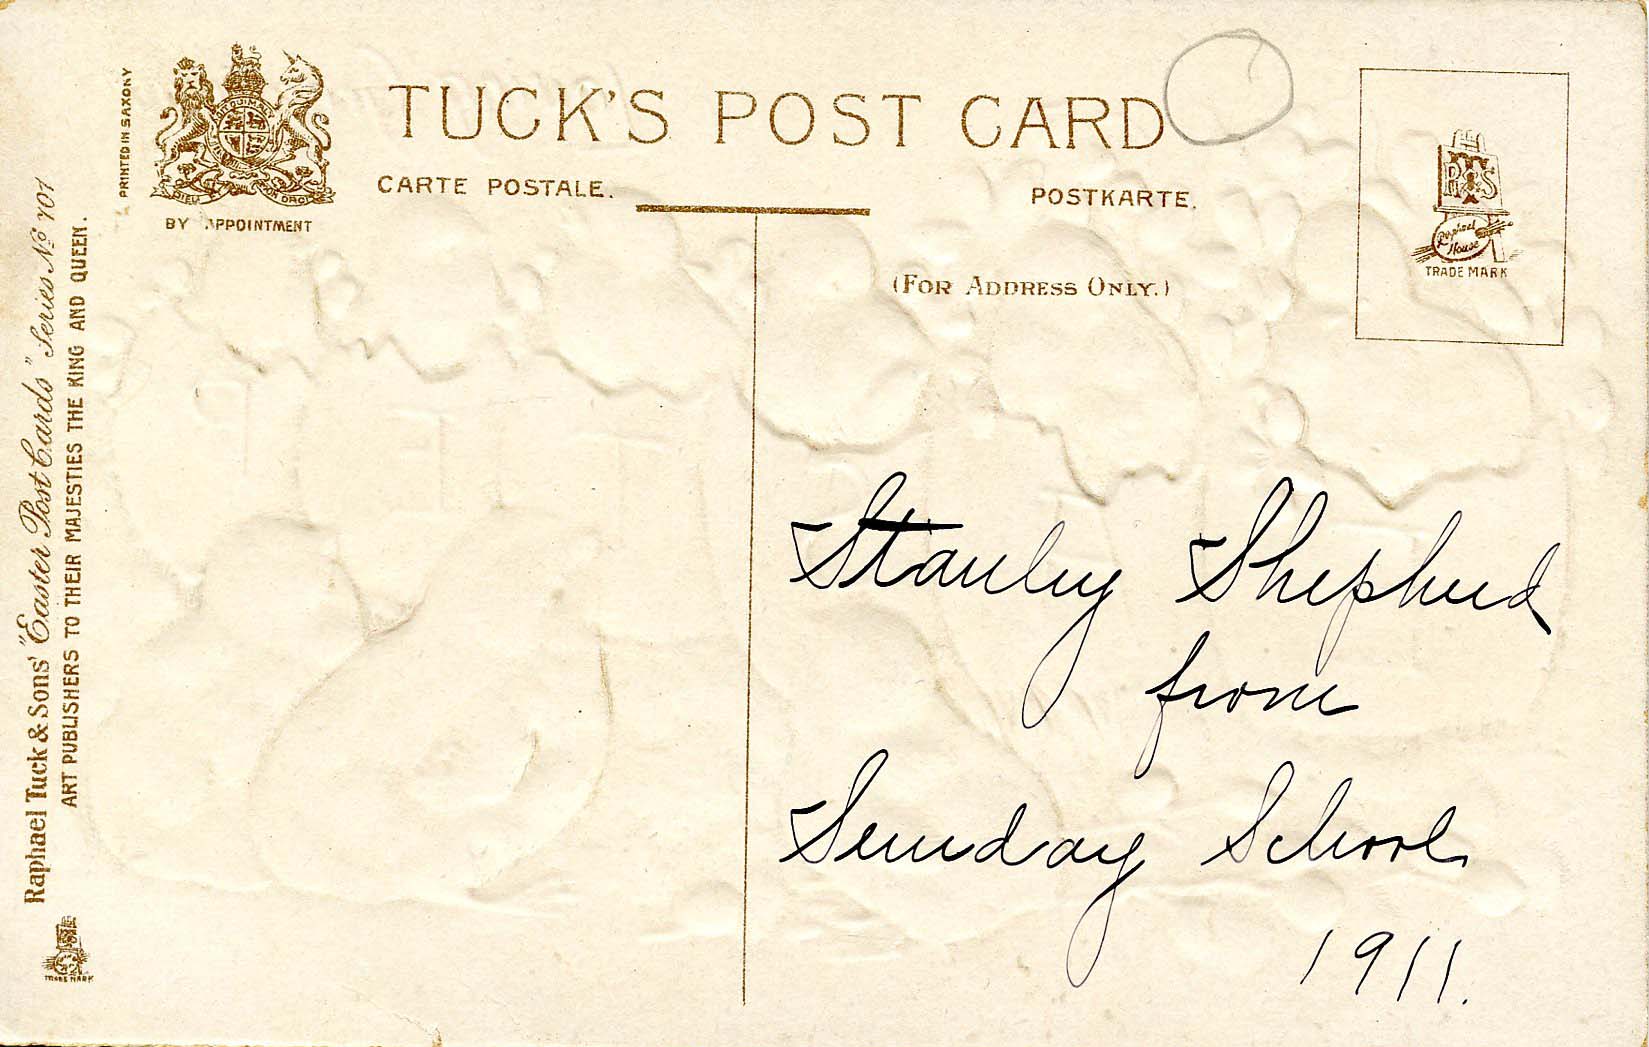 PRINTED IN SAXONY
BY APPOINTMENT
TUCK'S POST CARD
CARTE POSTALE.
POSTKARTE.
(FOR ADDRESS ONLY.)
Raphael House
TRADE MARK
Raphael Tuck & Sons' "Easter Post Cards" Series No 701
ART PUBLISHERS TO THEIR MAJESTIES THE KING AND QUEEN.
TRADE MARK
Stanley Shepherd
from
Sunday School
1911.